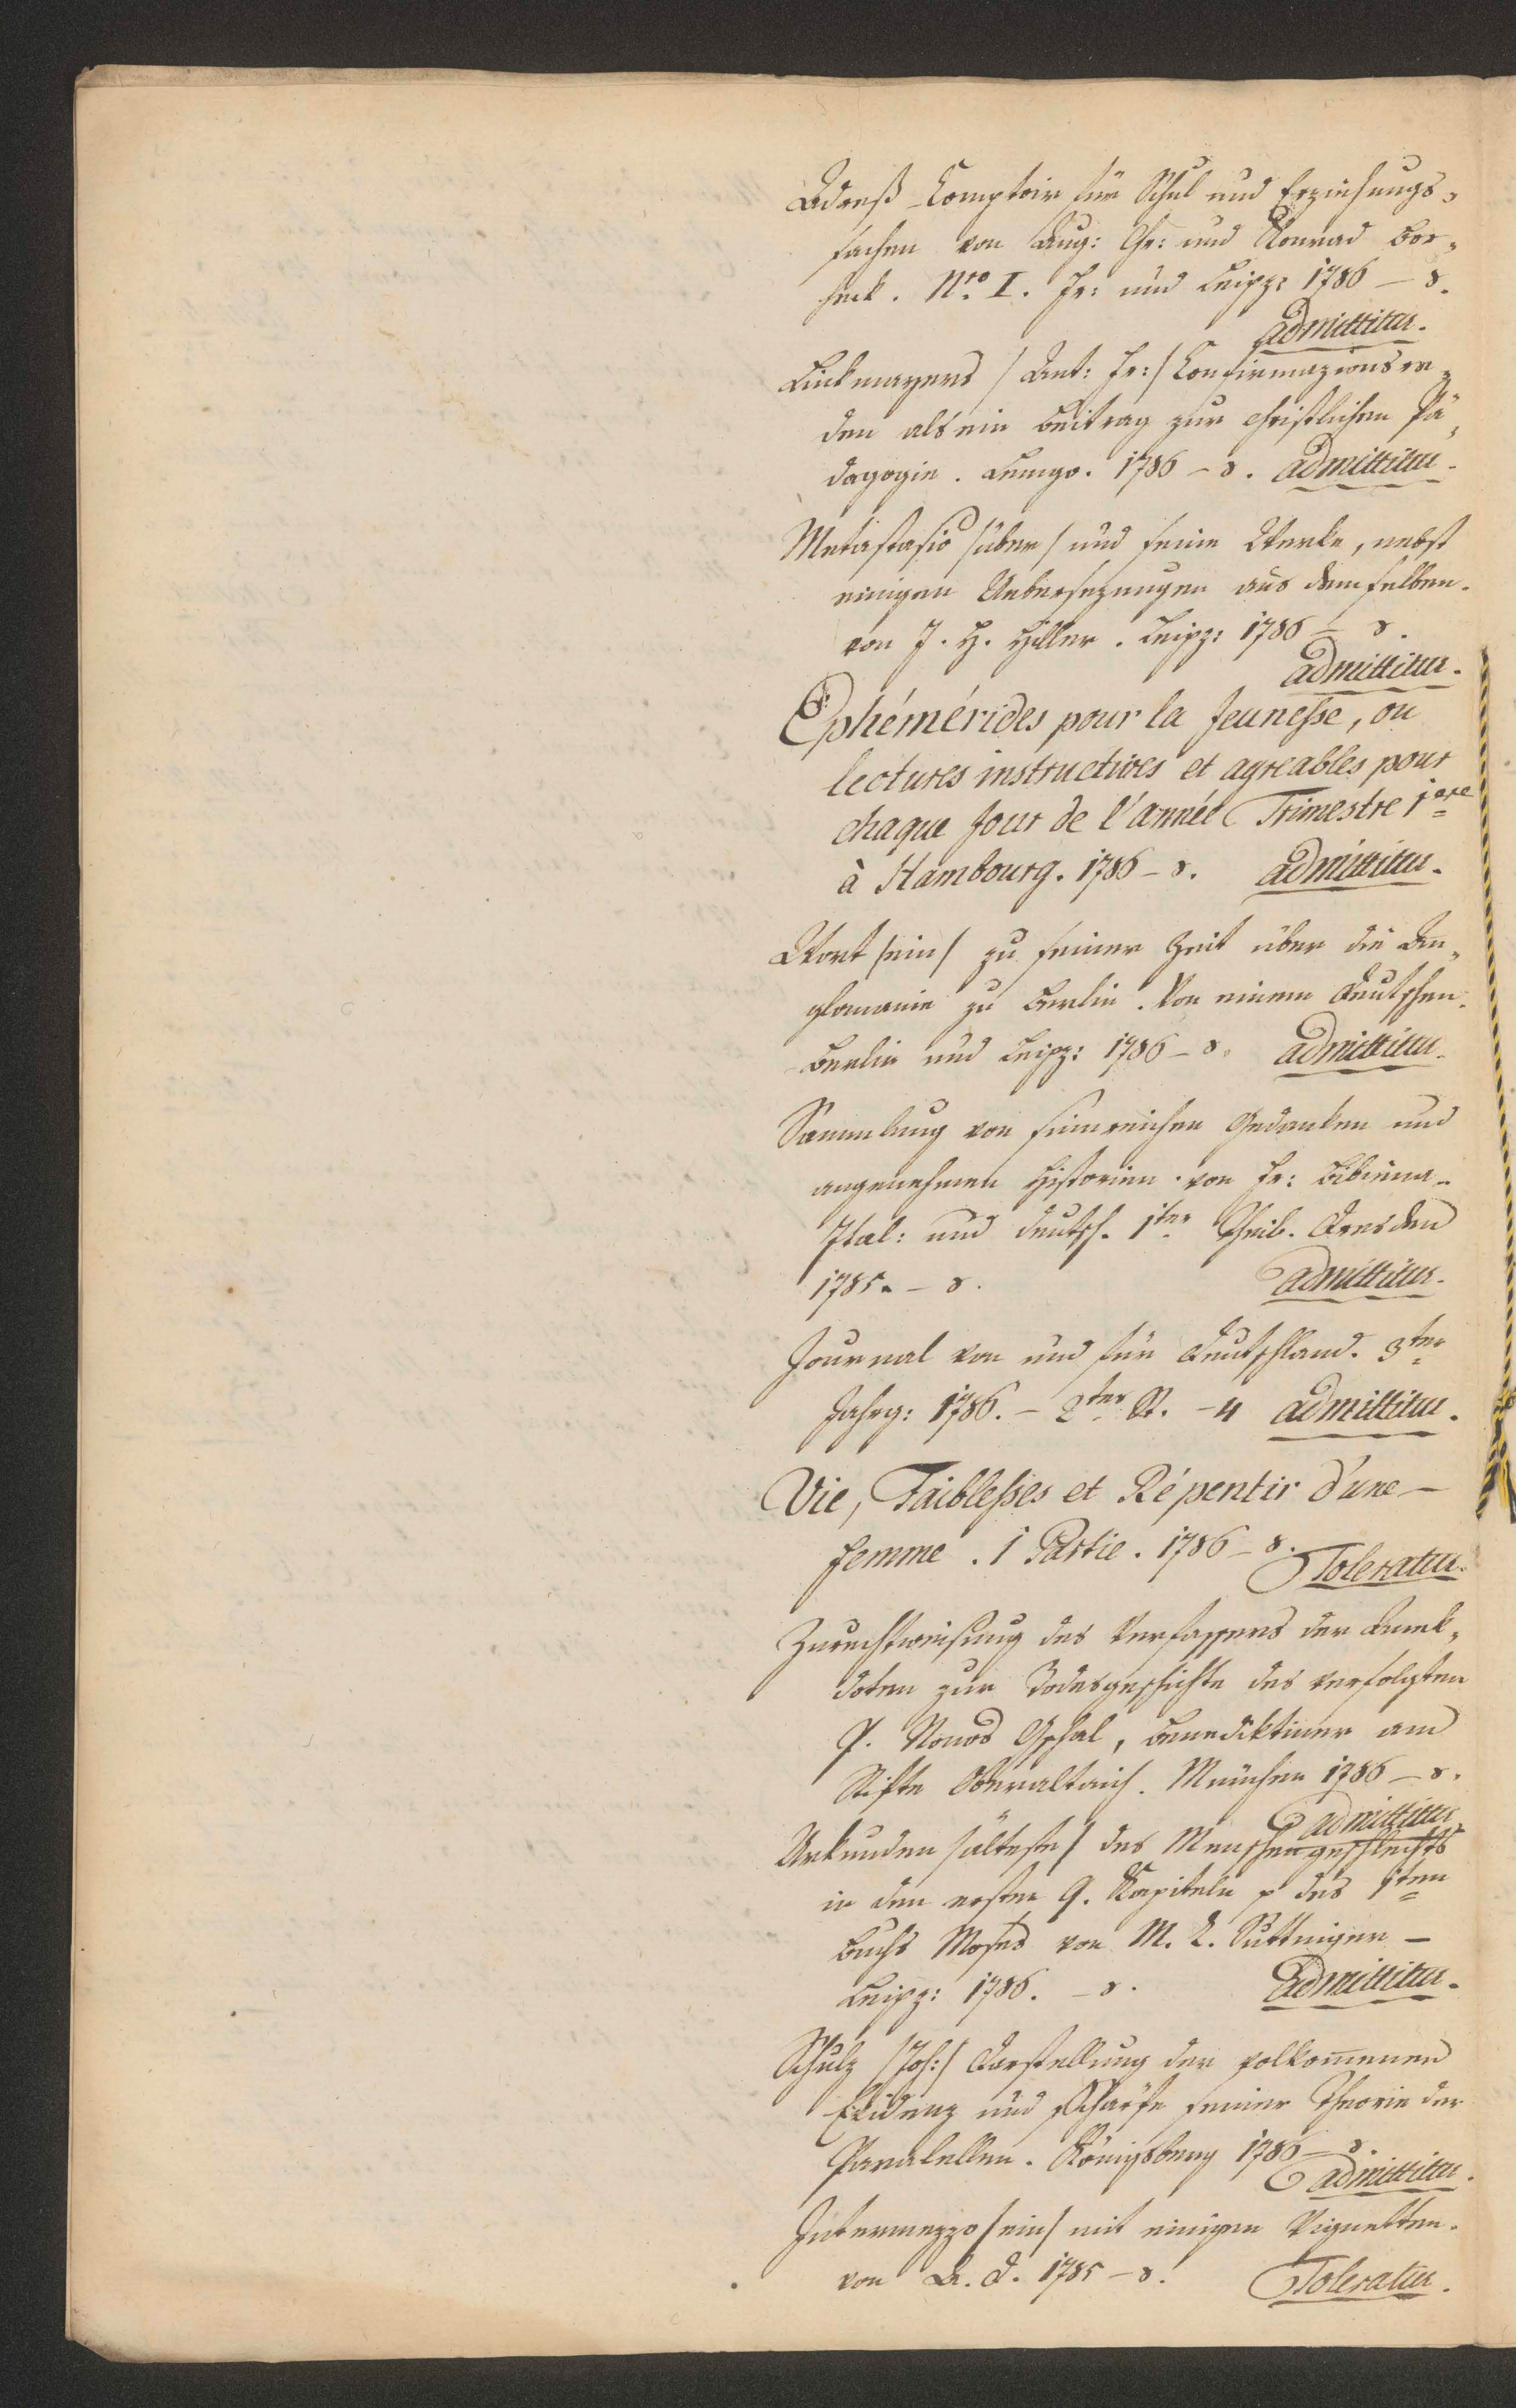 Adreß-Comptoir für Schul und Erziehungs-
sachen von Aug: Chr: und Konrad Bor-
heck. Nro I. Fr: und Leipz: 1786 – 8.
admittitur.
Linkmayers /Ant: Fr:/ Confirmazionsre-
den als ein Beitrag zur christlichen Pä-
dagogie. Lemgo. 1786 – 8. admittitur.
Metastasio /über/ und seine Werke, nebst
einigen Uebersezungen aus demselben.
von J. H. Hiller. Leipz: 1786 – 8.
admittitur.
Ephémérides pour la Jeunesse, ou
lectures instructives et agreables pour
chaque Jour de l'année Trimestre 1ere
à Hambourg. 1786 – 8. admittitur.
Wort /ein/ zu seiner Zeit über die An-
glomanie zu Berlin. Von einem Deutschen.
Berlin und Leipz: 1786 – 8. admittitur.
Sammlung von sinnreichen Gedanken und
angenehmen Historien. von Fr: Bibiena.
Ital: und deutsch. 1ter Theil. Dresden
1785. – 8. admittitur.
Journal von und für Deutschland. 3ter
Jahrg: 1786. – 2ter St. – 4 admittitur.
Vie, Faiblesses et Répentir d'une –
femme. 1 Partie. 1786 – 8.
Toleratur.
Zurechtweisung des Verfassers der Anek-
doten zur Todesgeschichte des verfolgten
P. Nonos Gschal, Benediktiner am
Stifte Oberaltaich. München 1786 – 8.
admittitur
Urkunden /älteste/ des Menschengeschlechts
in den ersten 9. Kapiteln des 1ten
Buchs Moses von M. L. Suttinger –
Leipz: 1786. – 8. Admittitur.
Schulz /Joh:/ Darstellung der volkommenen
Evidenz und Schärfe seiner Theorie der
Paralellen. Königsberg 1786 – 8.
admittitur.
Intermezzo /ein/ mit einigen Vignetten.
von L. d. 1785 – 8. Toleratur.